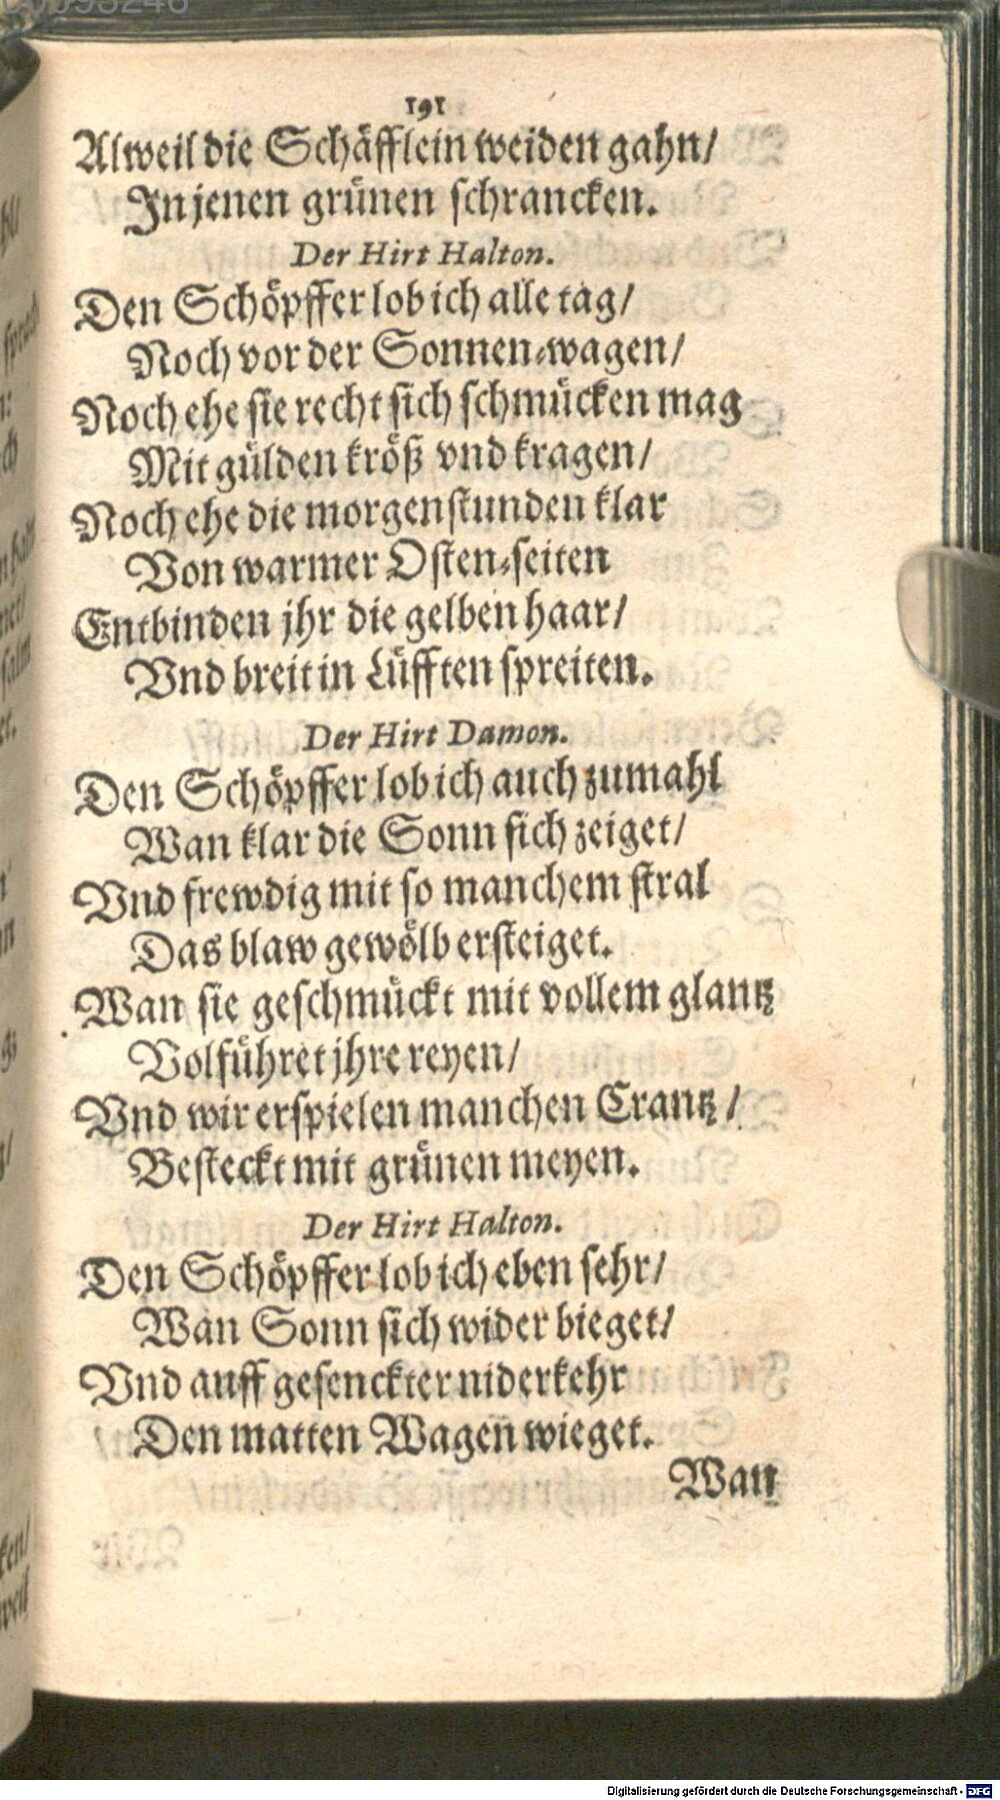 00093246
191
Alweil die Schäfflein weiden gahn/
In jenen grünen schrancken.
Der Hirt Halton.
Den Schöpffer lob ich alle tag/
Noch vor der Sonnen-wagen/
Noch ehe sie recht sich schmücken mag
Mit gülden kröß vnd kragen/
Noch ehe die morgenstunden klar
Von warmer Osten-seiten
Entbinden jhr die gelben haar/
Vnd breit in Lüfften spreiten.
Der Hirt Damon.
Den Schöpffer lob ich auch zumahl
Wan klar die Sonn sich zeiget/
Vnd frewdig mit so manchem stral
Das blaw gewölb ersteiget.
Wan sie geschmückt mit vollem glantz
Volführet jhre reyen/
Vnd wir erspielen manchen Crantz/
Besteckt mit grünen meyen.
Der Hirt Halton.
Den Schöpffer lob ich eben sehr/
Wan Sonn sich wider bieget/
Vnd auff gesenckter niderkehr
Den matten Wagen wieget.
Wan
Digitalisierung gefördert durch die Deutsche Forschungsgemeinschaft - DFG